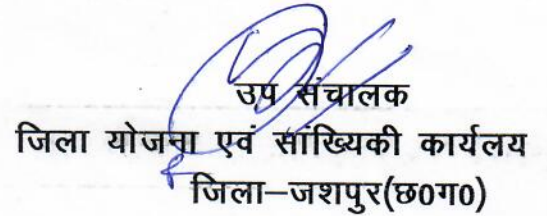 उप संचालक
जिला योजना एवं सांख्यिकी कार्यलय
जिला–जशपुर(छ0ग0)